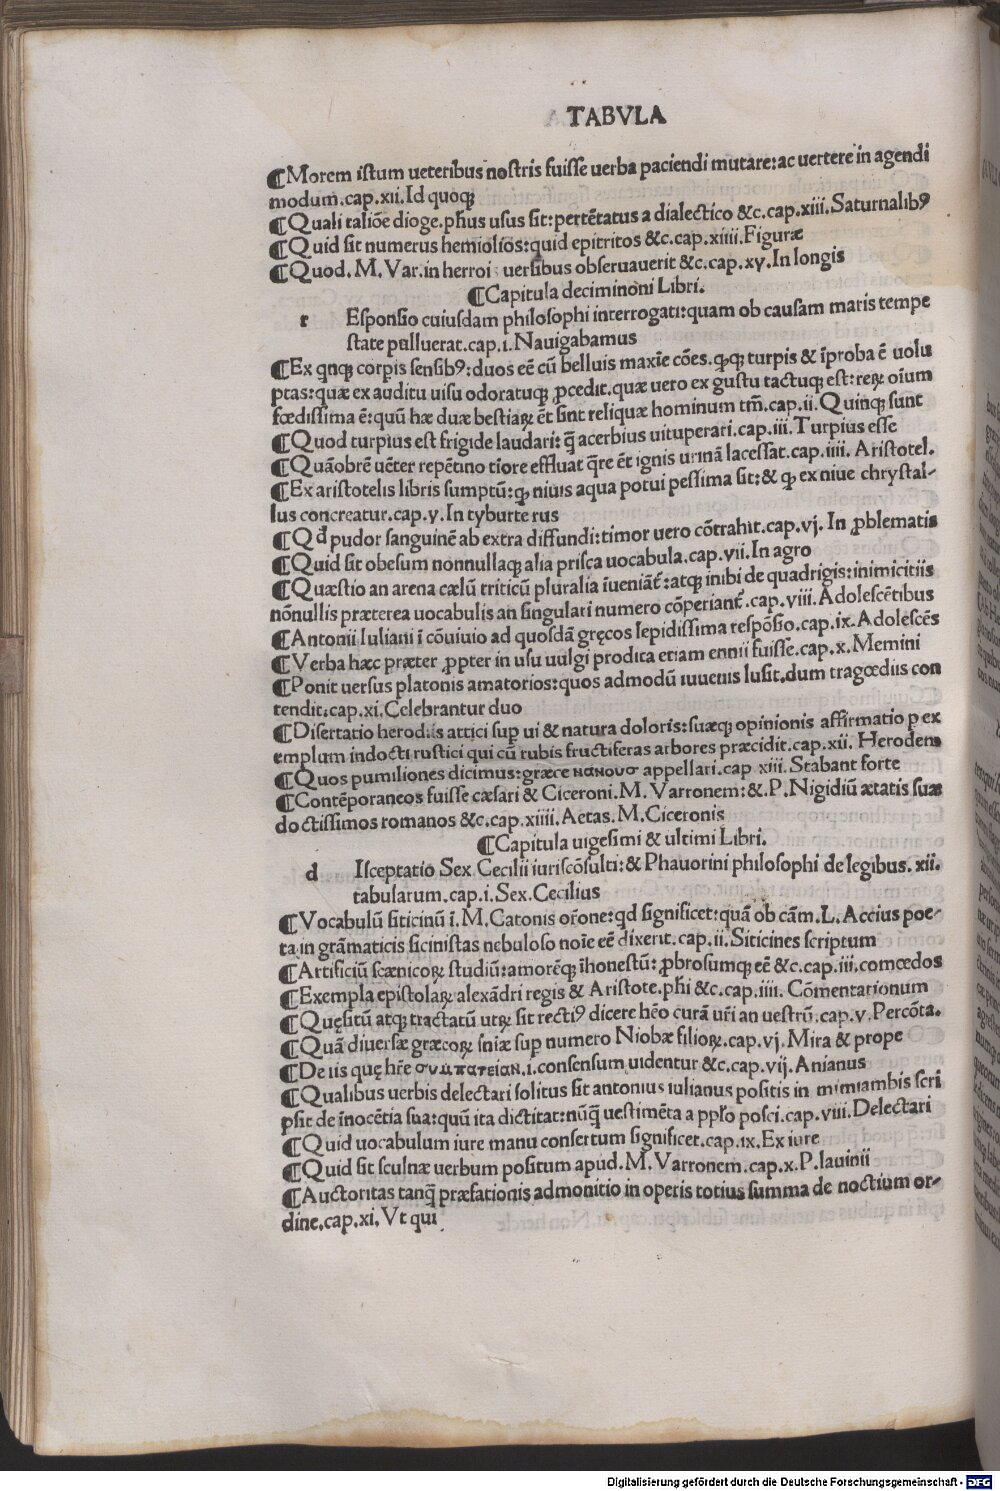 TABVLA
¶Morem istum ueteribus nostris fuisse uerba paciendi mutare: ac uertere in agendi
modum.cap.xii.Id quoqꝫ
¶Quali taliõe dioge.ph̃us usus sit:pertẽtatus a dialectico &c.cap.xiii.Saturnalibꝰ
¶Quid sit numerus hemiolios:quid epitritos &c.cap.xiiii.Figuræ
¶Quod.M.Var.in herroi uersibus obseruauerit &c.cap.xy.In longis
¶Capitula deciminoni Libri.
r Esponsio cuiusdam philosophi interrogati:quam ob causam maris tempe
state palluerat.cap.i.Nauigabamus
¶Ex qnqꝫ corpis sensibꝰ:duos eẽ cũ belluis maxie cões.ꝙqꝫ turpis & ĩproba ẽ uolu
ptas:quæ ex auditu uisu odoratuqꝫ ꝓcedit.quæ uero ex gustu tactuqꝫ est:reꝝ oĩum
fœdissima ẽ:quũ hæ duæ bestiaꝝ ẽt sint reliquæ hominum tm̃.cap.ii.Quinqꝫ sunt
¶Quod turpius est frigide laudari:q̃ acerbius uituperari.cap.iii.Turpius esse
¶Quãobrẽ uẽter repẽtino tiore effluat q̃re ẽt ignis urinã lacessat.cap.iiii. Aristotel.
¶Ex aristotelis libris sumptũ:ꝙ niuis aqua potui pessima sit:& ꝙ ex niue chrystal-
lus concreatur.cap.y.In tyburte rus
¶Qd pudor sanguinẽ ab extra diffundi:timor uero cõtrahit.cap.vj. In ꝓblematis
¶Quid sit obesum nonnullaqꝫ alia prisca uocabula.cap.vii.In agro
¶Quæstio an arena cælũ triticũ pluralia iueniãt̃:atqꝫ inibi de quadrigis:inimicitiis
nõnullis præterea uocabulis an singulari numero cõperiant̃.cap.viii.Adolescẽtibus
¶Antonii Iuliani ĩ cõuiuio ad quosdã gręcos lepidissima respõsio.cap.ix.Adolescẽs
¶Verba hæc præter ꝓpter in usu uulgi prodita etiam ennii fuisse.cap.x.Memini
¶Ponit uersus platonis amatorios:quos admodũ iuuenis lusit.dum tragœdiis con
tendit.cap.xi.Celebrantur duo
¶Disertatio herodis attici sup ui & natura doloris:suæqꝫ opinionis affirmatio p ex
emplum indocti rustici qui cũ rubis fructiferas arbores præcidit.cap.xii. Herodem
¶Quos pumiliones dicimus:græce νανουσ appellari.cap xiii.Stabant forte
¶Contẽporaneos fuisse cæsari & Ciceroni.M.Varronem:&.P.Nigidiũ ætatis suæ
doctissimos romanos &c.cap.xiiii.Aetas.M.Ciceronis
¶Capitula uigesimi & ultimi Libri.
d Isceptatio Sex Cecilii iuriscõsulti:& Phauorini philosophi de legibus.xii.
tabularum.cap.i.Sex.Cecilius
¶Vocabulũ siticinũ ĩ.M.Catonis or̃one:qd significet:quã ob cãm.L.Accius poe-
ta in grãmaticis sicinistas nebuloso noĩe eẽ dixerit.cap.ii.Siticines scriptum
¶Artificiũ scænicoꝝ studiũ:amorẽqꝫ ĩhonestũ:ꝓbrosumqꝫ eẽ &c.cap.iii.comœdos
¶Exempla epistolaꝝ alexãdri regis & Aristote.ph̃i &c.cap.iiii. Cõmentarionum
¶Quęsitũ atqꝫ tractatũ utꝝ sit rectiꝰ dicere hẽo curã ur̃i an uestrũ.cap.v.Percõta.
¶Quã diuersæ græcoꝝ sniæ sup numero Niobæ filioꝝ.cap.vj.Mira & prope
¶De iis quę hr̃e συμπατειαν.i.consensum uidentur &c.cap.vij.Anianus
¶Qualibus uerbis delectari solitus sit antonius iulianus positis in mimiambis scri
psit de ĩnocẽtia sua:quũ ita dictitat:nũq̃ uestimẽta a ppło posci.cap.viii.Delectari
¶Quid uocabulum iure manu consertum significet.cap.ix.Ex iure
¶Quid sit sculnæ uerbum positum apud.M.Varronem.cap.x.P.lauinii
¶Auctoritas tanq̃ præfationis admonitio in operis totius summa de noctium or-
dine.cap.xi.Vt qui
Digitalisierung gefördert durch die Deutsche Forschungsgemeinschaft - DFG